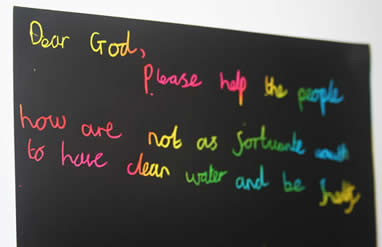 Dear God,
Please help the people
how are not as fortunate
to have clean water and be